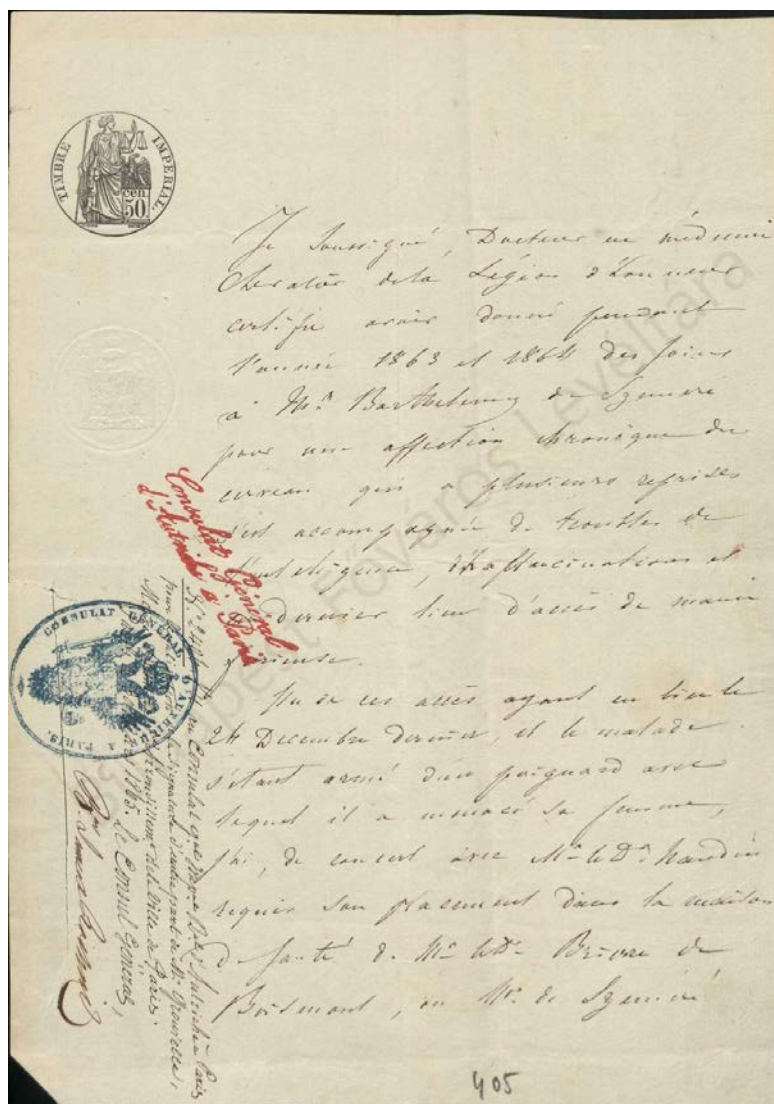 TIMBRE IMPERIAL
cen
50
Je soussigné, Docteur en médecine
Chevalier de la Légion d'honneur
certifie avoir donné pendant
l'année 1863 et 1864 des soins
à Mr. Barthelemy de Szemeré
pour une affection chronique du
cerveau qui a plusieurs reprises
s'est accompagnée de troubles de
l'intelligence, d'hallucinations et
en dernier lieu d'accès de manie
furieuse.
Un de ces accès ayant eu lieu le
24 Decembre dernier, et le malade
s'étant armé d'un poignard avec
lequel il a menacé sa femme,
j'ai, de concert avec Mr. le Dr.
requis son placement dans la maison
de santé de Mr. le Dr. Brierre de
Boismont, où Mr. de Szemeré
405
Consulat Général
d'Autriche à Paris
CONSULAT GÉNÉRAL D'AUTRICHE A PARIS.
Vu au Consulat Autriche à Paris
pour la signature d'autre part de Mr.
de la Ville de Paris.
1865. Le Consul Général,
Budapest Főváros Levéltára